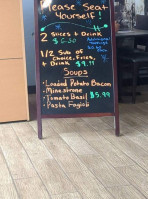 Please Seat
Yourself!
2 Slices + Drink
$ 6.50
Additional
Toppings
1/2 Sub of
Choice, Fries,
+ Drink $9.99
Soups
- Loaded Potato Bacon
- Minestrone
- Tomato Basil $5.99
- Pasta Fagioli